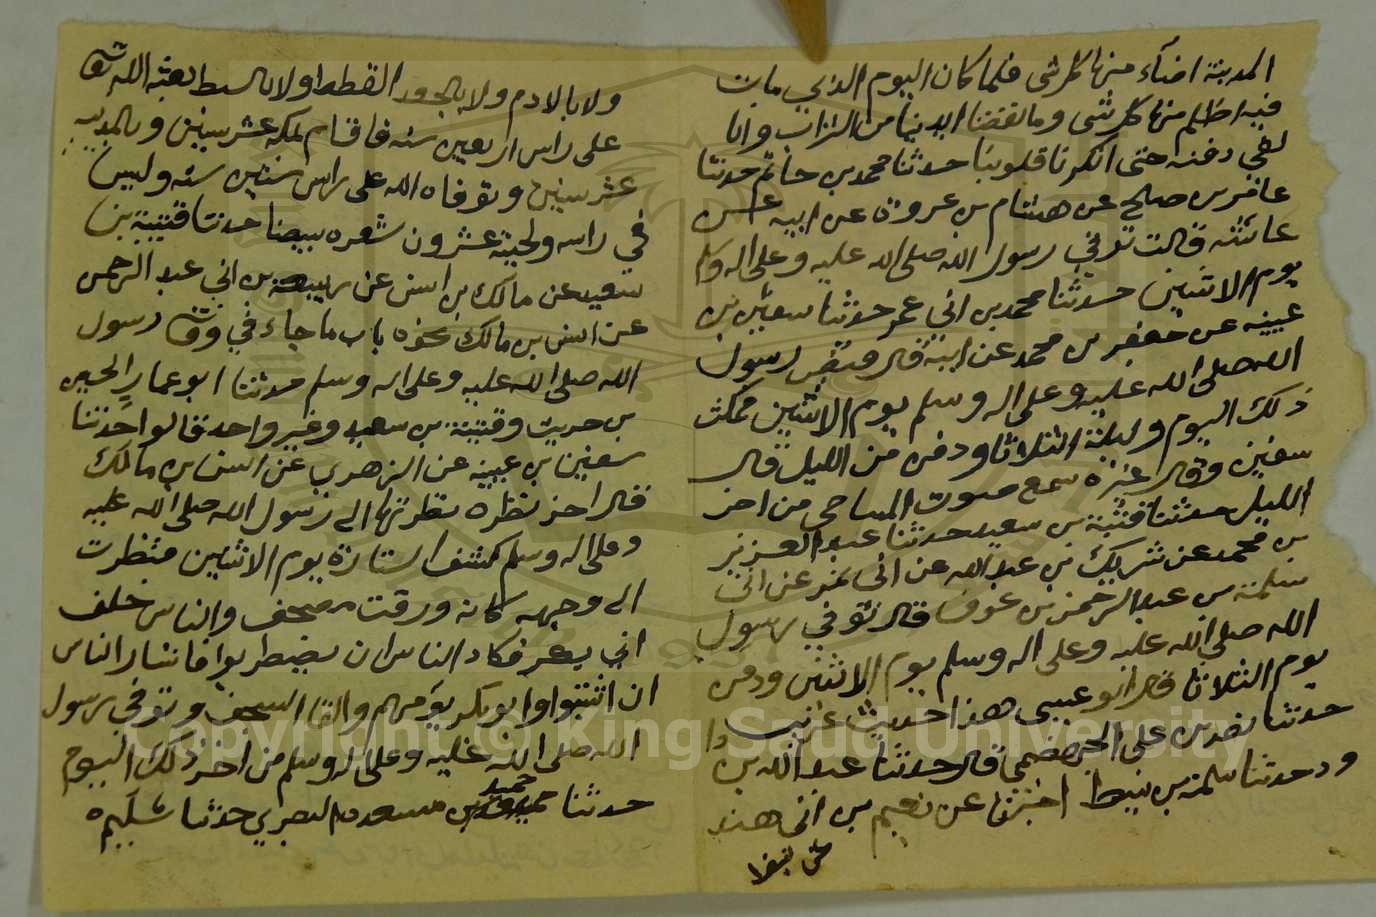 المدينة اضآء منها كل شى فلما كان اليوم الذي مات
فيه اظلم منها كل شى وما نفضنا ايدينا من التراب وانا
لفي دفنه حتى انكرنا قلوبنا حدثنا محمد بن حاتم حدثنا
عامر بن صالح عن هشام بن عروة عن ابيه عن
عائشه قالت توفي رسول الله صلى الله عليه وعلى اله وسلم
يوم الاثنين حدثنا محمد بن ابي عمر حدثنا سفين بن
عيينه عن جعفر بن محمد عن ابيه قال قبض رسول
الله صلى الله عليه وعلى اله وسلم يوم الاثنين فمكث
ذلك اليوم وليلة الثلاثا ودفن من الليل قال
سفين وقال غيره سمع صوت المساحي من اخر
الليل حدثنا قتيبة بن سعيد حدثنا عبد العزيز
بن محمد عن شريك بن عبد الله بن ابي نمر عن ابي
سلمة بن عبد الرحمن بن عوف قال توفي رسول
الله صلى الله عليه وعلى اله وسلم يوم الاثنين ودفن
يوم الثلاثا قال ابو عيسى هذا حديث غريب
حدثنا نصر بن على الجهضمي قال حدثنا عبد الله بن دا
ود حدثنا سلمة بن نبيط اخبرنا عن نعيم بن ابي هند
ولا بالادم ولا بالجعد القطط ولا بالسبط بعثه الله تعا
على راس اربعين سنه فاقام بمكه عشر سنين وبالمدينه
عشر سنين وتوفاه الله على راس ستين سنه وليس
في راسه ولحيته عشرون شعره بيضا حدثنا قتيبة بن
سعيد عن مالك بن انس عن ربيعه بن ابي عبد الرحمن
عن انس بن مالك نحوه باب ما جاء في وفاة رسول
الله صلى الله عليه وعلى اله وسلم حدثنا ابو عمار الحسين
بن حريث وقتيبة بن سعيد وغير واحد قالوا حدثنا
سفين بن عيينه عن الزهري عن انس بن مالك
قال اخر نظره نظرتها الى رسول الله صلى الله عليه
وعلى اله وسلم كشف الستارة يوم الاثنين فنظرت
الى وجهه كانه ورقت مصحف والناس خلف
ابي بكر فكاد الناس ان يضطربوا فاشار الناس
ان اثبتوا وابو بكر يؤمهم والقا السجف وتوفي رسول
الله صلى الله عليه وعلى اله وسلم من اخر ذلك اليوم
حدثنا حميد بن مسعده البصري حدثنا سليم
Copyright © King Saud University